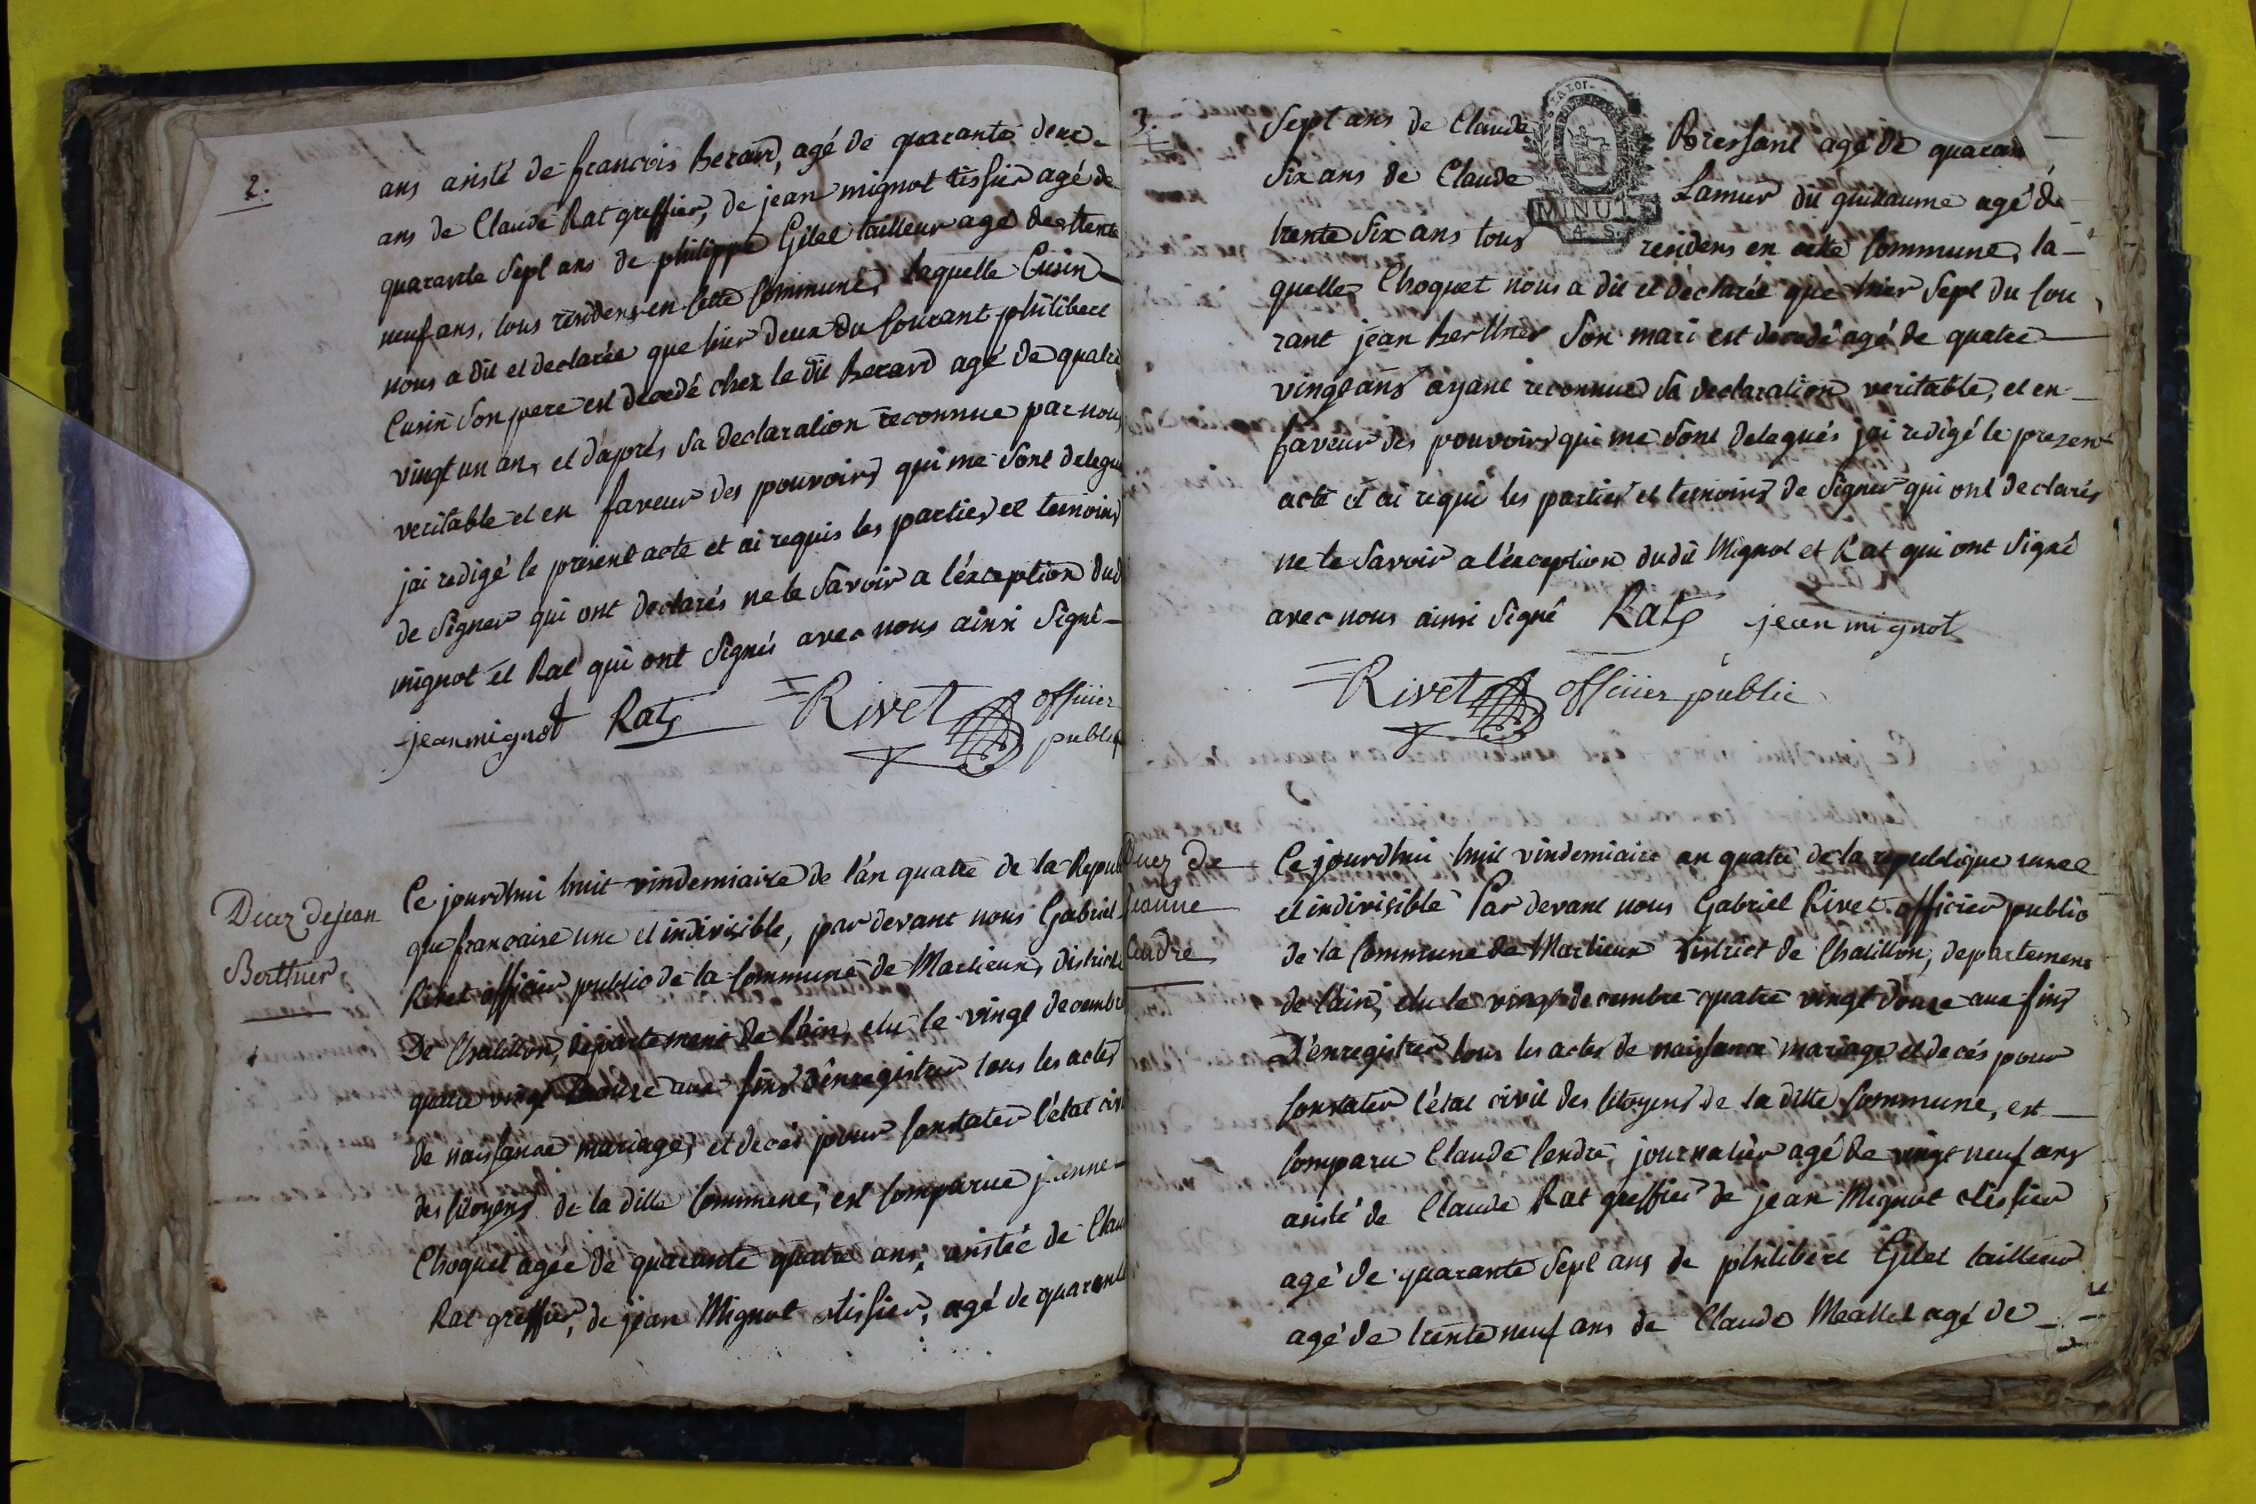 2.
ans aristé de francois Berard, agé de quarante deux
ans de Claude Rat greffier, de jean mignot tissier agé de
quarante Sept ans de philippe Gilet tailleur agé de trente
neuf ans, tous résidens en cette Commune, laquelle Cusin
nous a dit et declarée que hier deux du Courant philibert
Cusin Son pere est décedé chez le dit Berard agé de quatre
vingt un an, et d'aprés Sa declaration reconnue par nous
veritable et en faveur des pouvoirs qui me Sont delegu
jai redigé le present acte et ai requis les parties et temoins
de Signer qui ont declarés ne le Savoir a l'éxception dud
mignot et Rat qui ont Signés avec nous ainsi Signé
jean mignot Rat Rivet officier
public
Decez de jean
Berthier
Ce jourdhui huit vindemiaire de l'an quatre de la Repub
que francaise une et indivisible, par devant nous Gabriel
Rivet officier public de la Commune de Marlieux, district
De Chatillon, département de l'ain, elu le vingt decembre
quatre vingt douze aux fins d'énregistrer tous les actes
de naissance mariage, et decés pour Constater l'état civi
des Citoyens de la ditte Commune, est Comparue jeanne
Choquet agée de quarante quatre ans, aristée de Clau
Rat greffier, de jean Mignot tissier, agé de quarante
3.
Sept ans de Claude Bressant agé de quaran
Six ans de Claude Lamur dit guillaume agé de
trente Six ans tous residens en cette Commune, la
quelle Choquet nous a dit et déclarée que hier Sept du Cou
rant jean Berthier Son mari est décedé agé de quatre
vingt ans ayant reconnue Sa declaration veritable, et en
faveur des pouvoirs qui me Sont delegués jai redigé le present
acte et ai requi les parties et temoins de Signer qui ont declarés
ne le Savoir a l'éxception dudit Mignot et Rat qui ont Signé
avec nous ainsi Signé Rat jean mignot
Rivet officier public
MINUT
4. S.
Decez de
jeanne
Cendre
Ce jourdhui huit vindemiaire an quatre de la republique une
et indivisible Par devant nous Gabriel Rivet officier public
de la Commune de Marlieux district de Chatillon, departement
de l'ain, elu le vingt decembre quatre vingt douze aux fins
D'énregistrer tous les actes de naissance mariage et decés pour
Constater l'état civil des Citoyens de la ditte Commune, est
Comparu Claude Cendre, journalier agé de vingt neuf ans
aristé de Claude Rat greffier de jean Mignot tissier
agé de quarante Sept ans de philibert Gilet tailleur
agé de trente neuf ans de Claude Meallet agé de